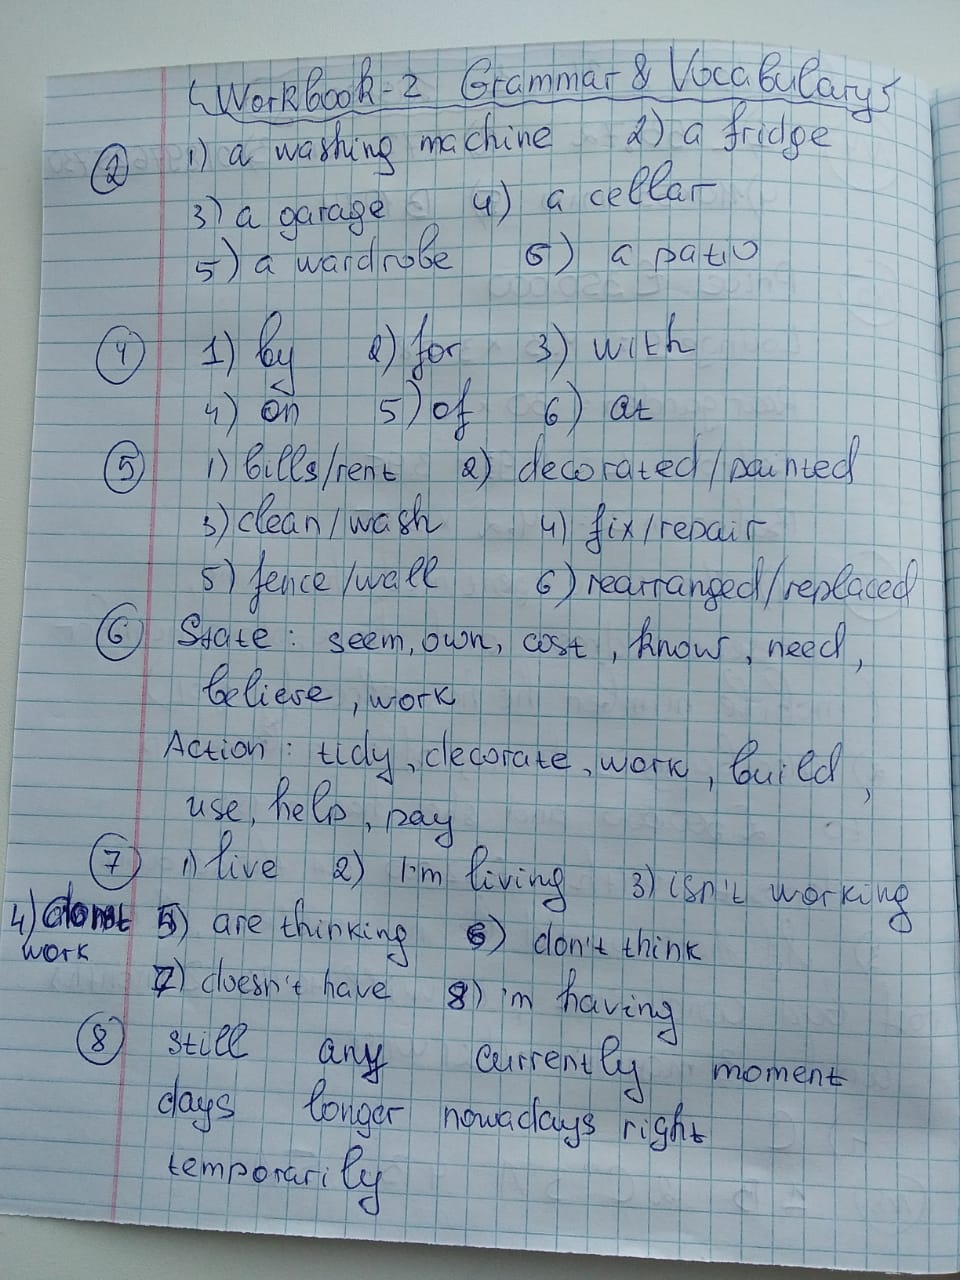 Workbook-2 Grammar & Vocabulary
② 1) a washing machine 2) a fridge
3) a garage 4) a cellar
5) a wardrobe 6) a patio
④ 1) by 2) for 3) with
4) on 5) of 6) at
⑤ 1) bills/rent 2) decorated/painted
3) clean/wash 4) fix/repair
5) fence/wall 6) rearranged/replaced
⑥ State: seem, own, cost, know, need,
believe, work
Action: tidy, decorate, work, build,
use, help, pay
⑦ 1) live 2) I'm living 3) isn't working
4) do not 5) are thinking 6) don't think
work
7) doesn't have 8) 'm having
⑧ still any currently moment
days longer nowadays right
temporarily